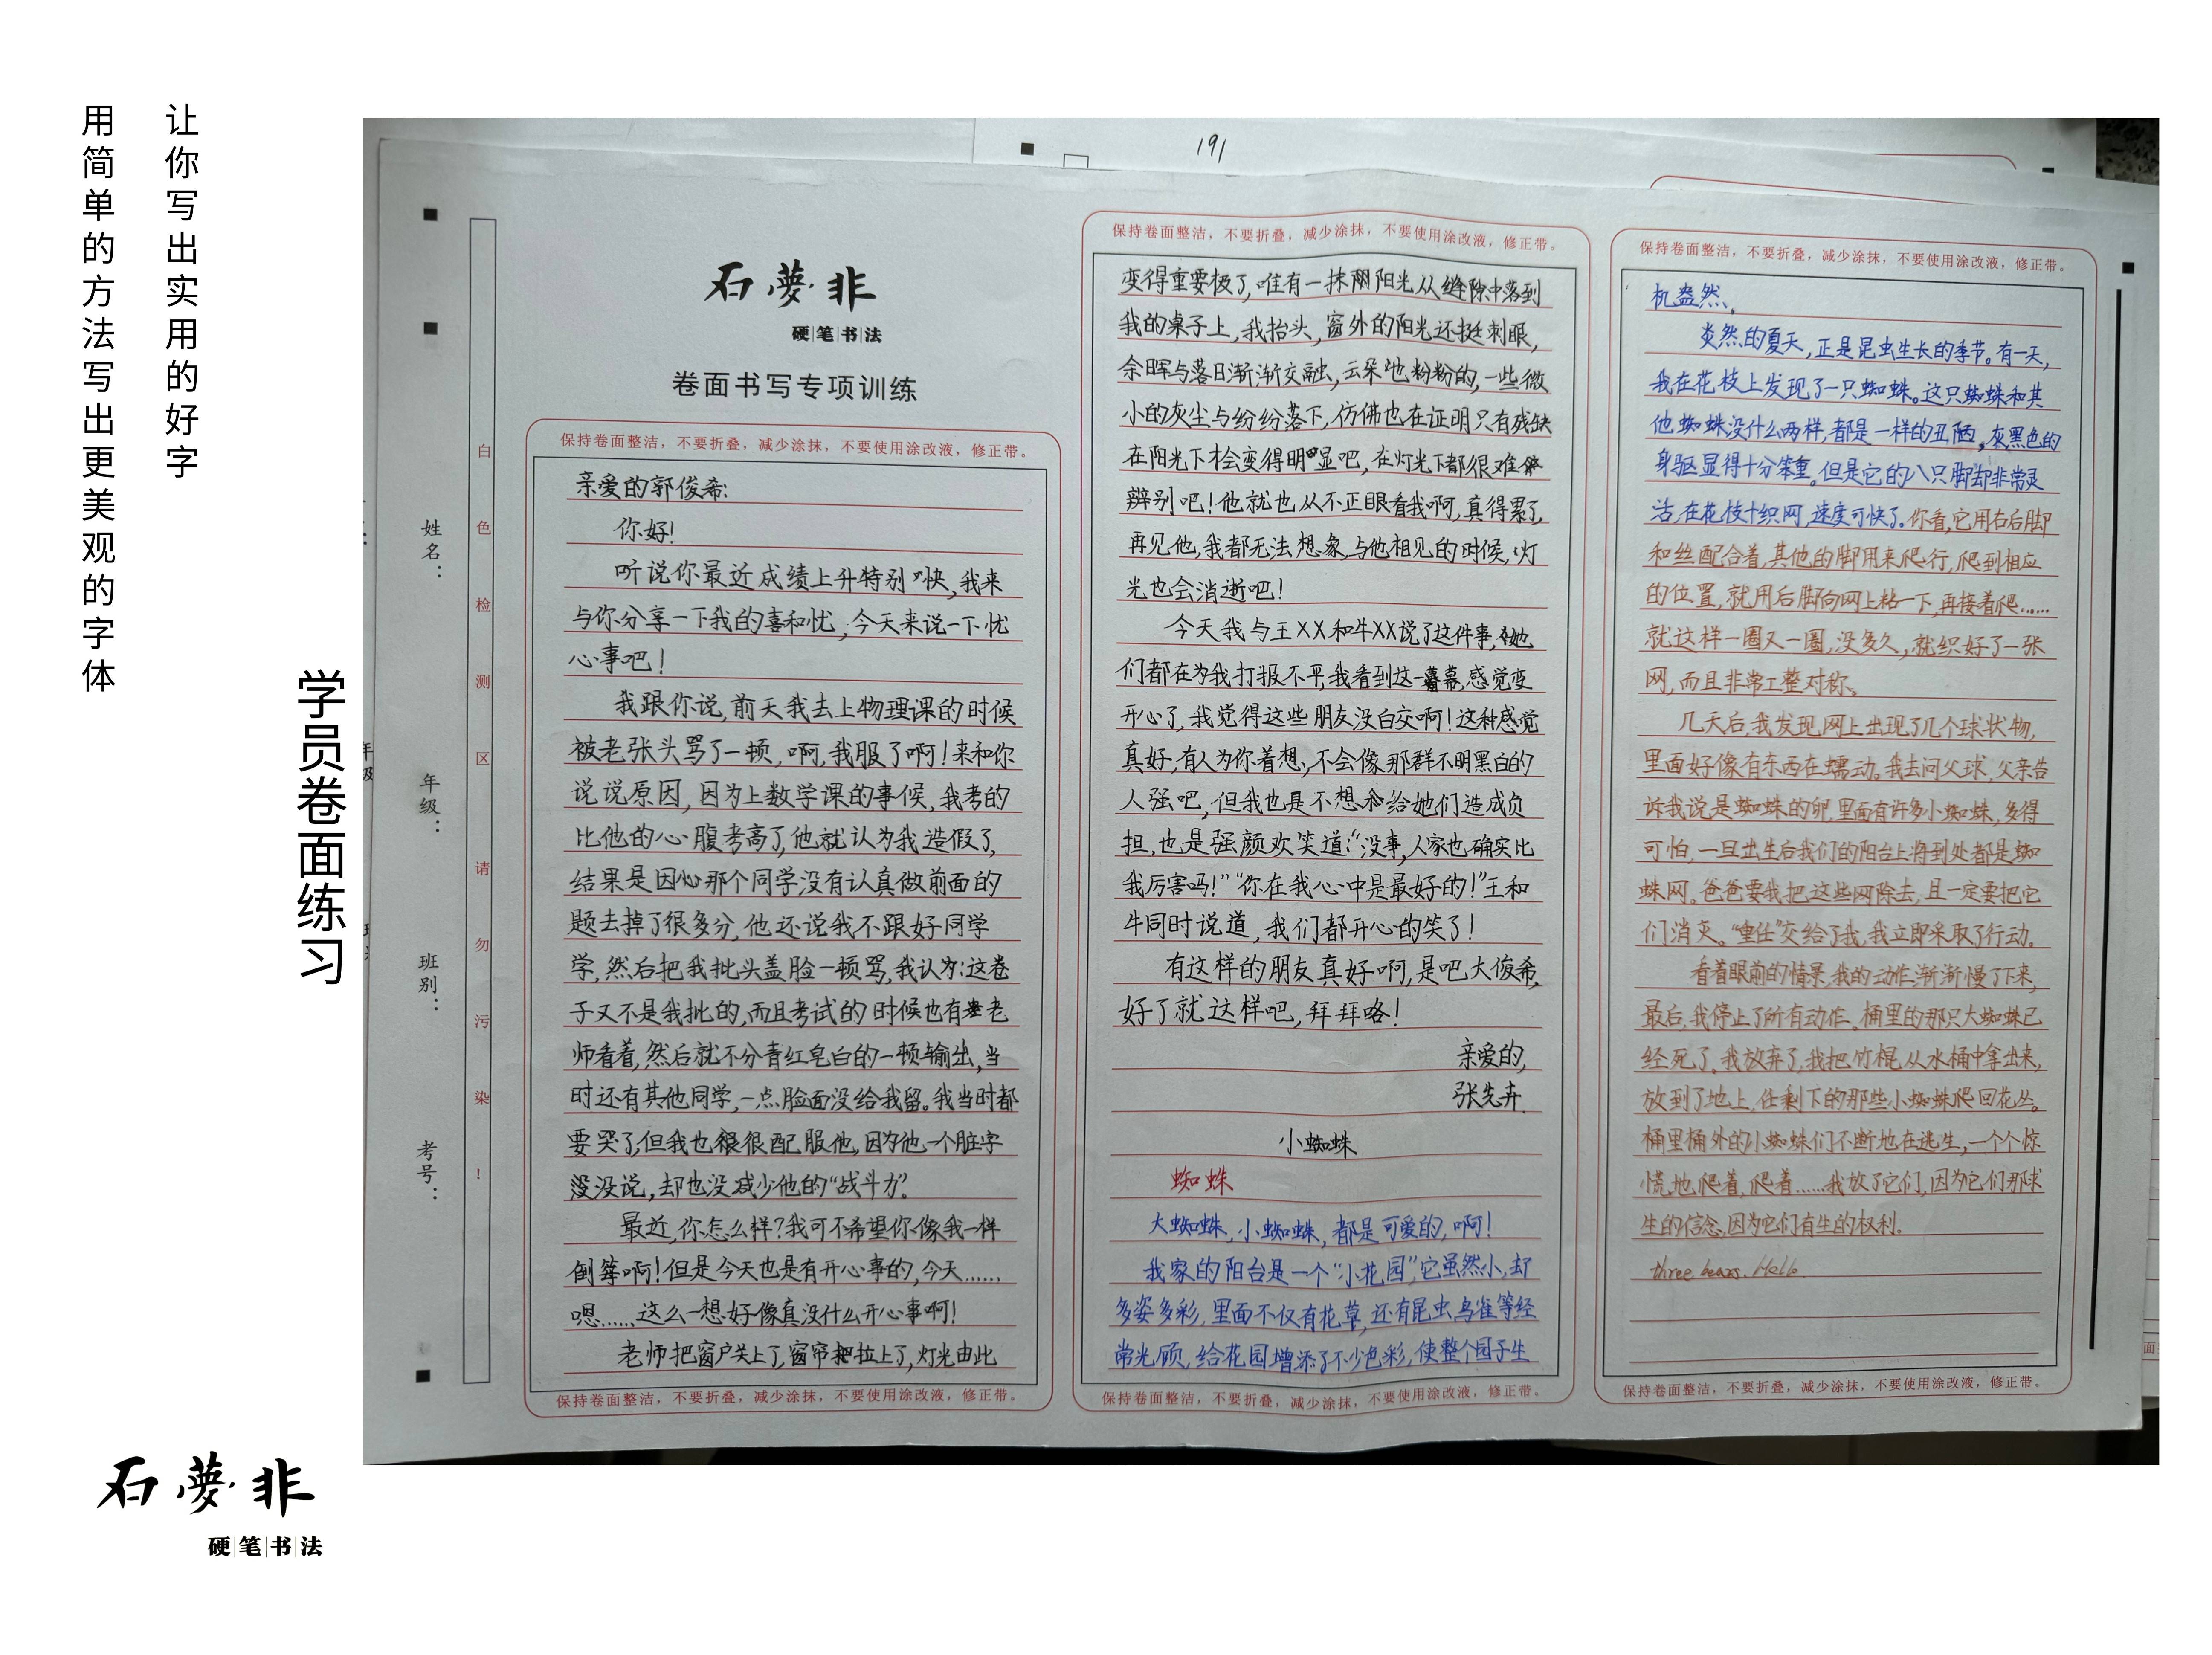 让你写出实用的好字
用简单的方法写出更美观的字体
学员卷面练习
石夢非
硬笔书法
191
石夢非
硬笔书法
卷面书写专项训练
白色检测区 请勿污染！
姓名：
年级：
班别：
考号：
保持卷面整洁，不要折叠，减少涂抹，不要使用涂改液，修正带。
亲爱的郭俊希:
你好!
听说你最近成绩上升特别快,我来
与你分享一下我的喜和忧,今天来说一下忧
心事吧!
我跟你说,前天我去上物理课的时候
被老张头骂了一顿,啊,我服了啊!来和你
说说原因,因为上数学课的事候,我考的
比他的心腹考高了,他就认为我造假了,
结果是因心那个同学没有认真做前面的
题去掉了很多分,他还说我不跟好同学
学,然后把我批头盖脸一顿骂,我认为:这卷
子又不是我批的,而且考试的时候也有老
师看着,然后就不分青红皂白的一顿输出,当
时还有其他同学,一点脸面没给我留。我当时都
要哭了,但我也很很配服他,因为他一个脏字
没没说,却也没减少他的“战斗力”。
最近,你怎么样?我可不希望你像我一样
倒筹啊!但是今天也是有开心事的,今天……
嗯……这么一想好像真没什么开心事啊!
老师把窗户关上了,窗帘拉上了,灯光由此
保持卷面整洁，不要折叠，减少涂抹，不要使用涂改液，修正带。
保持卷面整洁，不要折叠，减少涂抹，不要使用涂改液，修正带。
变得重要极了,唯有一抹阳光从缝隙中落到
我的桌子上,我抬头,窗外的阳光还挺刺眼,
余晖与落日渐渐交融,云朵也粉粉的,一些微
小的灰尘与纷纷落下,仿佛也在证明只有残缺
在阳光下才会变得明显吧,在灯光下都很难
辨别吧!他就也从不正眼看我啊,真得累了,
再见他,我都无法想象,与他相见的时候,灯
光也会消逝吧!
今天我与王XX和牛XX说了这件事,她
们都在为我打报不平,我看到这一幕,感觉变
开心了,我觉得这些朋友没白交啊!这种感觉
真好,有人为你着想,不会像那群不明黑白的
人强吧,但我也是不想给她们造成负
担,也是强颜欢笑道:“没事,人家也确实比
我厉害吗!”“你在我心中是最好的!”王和
牛同时说道,我们都开心的笑了!
有这样的朋友真好啊,是吧大俊希,
好了就这样吧,拜拜咯!
亲爱的,
张先卉.
小蜘蛛
蜘蛛
大蜘蛛,小蜘蛛,都是可爱的,啊!
我家的阳台是一个“小花园”,它虽然小,却
多姿多彩,里面不仅有花草,还有昆虫鸟雀等经
常光顾,给花园增添了不少色彩,使整个园子生
保持卷面整洁，不要折叠，减少涂抹，不要使用涂改液，修正带。
保持卷面整洁，不要折叠，减少涂抹，不要使用涂改液，修正带。
机盎然、
炎然的夏天,正是昆虫生长的季节。有一天,
我在花枝上发现了一只蜘蛛。这只蜘蛛和其
他蜘蛛没什么两样,都是一样的丑陋,灰黑色的
身驱显得十分笨重。但是它的八只脚却非常灵
活,在花枝十织网,速度可快了。你看,它用右后脚
和丝配合着,其他的脚用来爬行,爬到相应
的位置,就用后脚向网上粘一下,再接着爬……
就这样一圈又一圈,没多久,就织好了一张
网,而且非常工整对称。
几天后,我发现网上出现了几个球状物,
里面好像有东西在蠕动。我去问父球,父亲告
诉我说是蜘蛛的卵,里面有许多小蜘蛛,多得
可怕,一旦出生后我们的阳台上将到处都是蜘
蛛网。爸爸要我把这些网除去,且一定要把它
们消灭。“重任”交给了我,我立即采取了行动。
看着眼前的情景,我的动作渐渐慢了下来,
最后,我停止了所有动作。桶里的那只大蜘蛛已
经死了,我放弃了,我把竹棍从水桶中拿出来,
放到了地上,任剩下的那些小蜘蛛爬回花丛。
桶里桶外的小蜘蛛们不断地在逃生,一个个惊
慌地爬着,爬着……我放了它们,因为它们那求
生的信念,因为它们有生的权利。
three bears. Hello
保持卷面整洁，不要折叠，减少涂抹，不要使用涂改液，修正带。